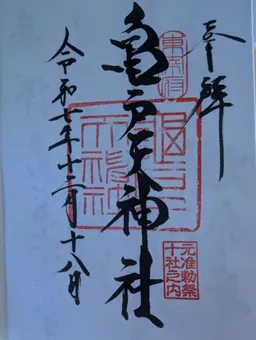 奉拝
東宰府
亀戸天神社
亀戸天神社
元准勅祭
十社之内
令和七年十二月十八日